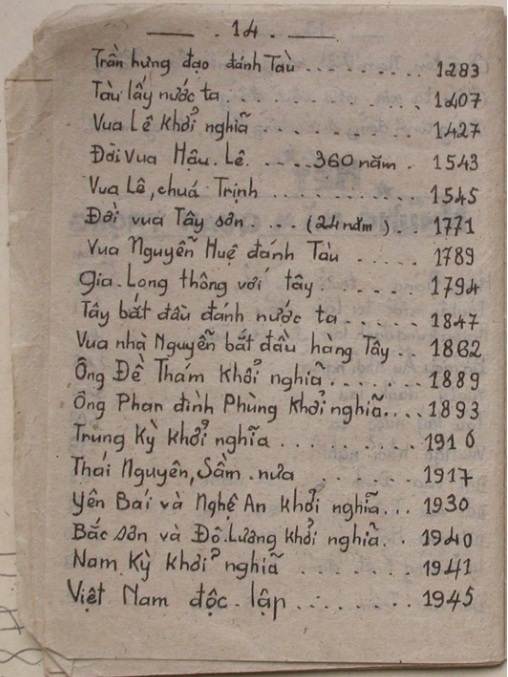 — . 14 . —
Trần hưng đạo đánh Tàu ........ 1283
Tàu lấy nước ta ........... 1407
Vua Lê khởi nghĩa ........... 1427
Đời vua Hậu. Lê. .... 360 năm . 1543
Vua Lê, chuá Trịnh ........... 1545
Đời vua Tây sơn ... (24 năm) ... 1771
Vua Nguyễn Huệ đánh Tàu ..... 1789
Gia. Long thông với tây ....... 1794
Tây bắt đầu đánh nước ta ...... 1847
Vua nhà Nguyễn bắt đầu hàng Tây .. 1862
Ông Đề Thám khởi nghiã ....... 1889
Ông Phan đình Phùng khởi nghiã.... 1893
Trung Kỳ khởi nghĩa ......... 1916
Thái Nguyên, Sầm. nưa ...... 1917
Yên Bái và Nghệ An khởi nghiã... 1930
Bắc sơn và Đô. Lương khởi nghiã. .. 1940
Nam Kỳ khởi nghiã ......... 1941
Việt Nam độc. lập ......... 1945